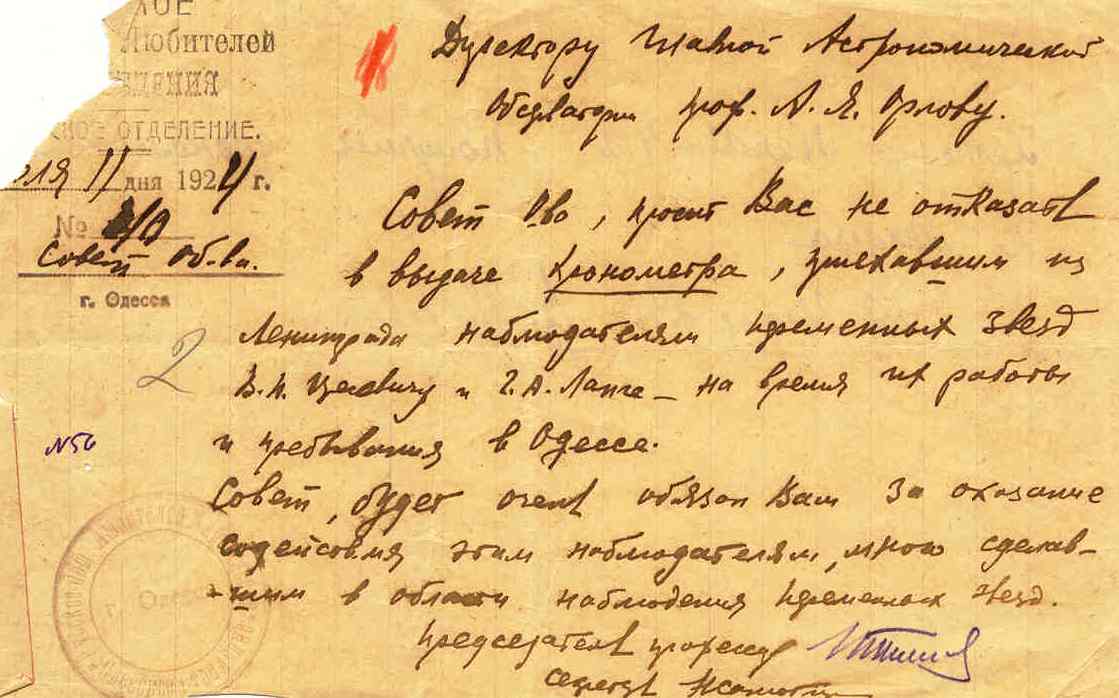 ЛОЕ
Любителей
ДЕНИЯ
СКОЕ ОТДЕЛЕНИЕ.
ля 11 дня 1924 г.
№ 40
Совет Об-ва.
г. Одесса
Директору Главной Астрономической
Обсерватории проф. А. Я. Орлову.
Совет О-ва, просит Вас не отказать
в выдаче хронометра, приехавшим из
Ленинграда наблюдателям переменных звезд
В. П. Цесевичу и Г. А. Ланге – на время их работы
и пребывания в Одессе.
2
N56
Совет, будет очень обязан Вам за оказание
содействия этим наблюдателям, много сделав-
-шим в области наблюдения переменных звезд.
Председатель профессор
Секретарь
г. Одесса